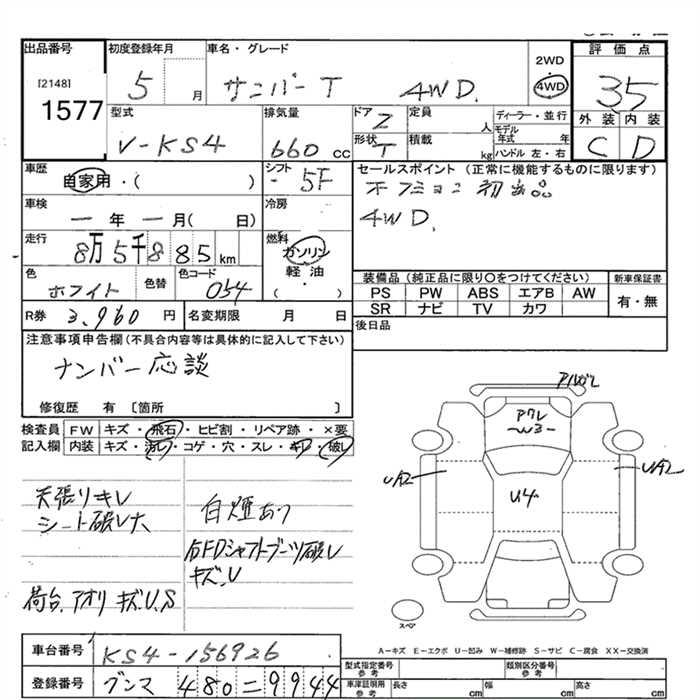 出品番号 初度登録年月 車名・グレード 2WD 評価点
[2148] 5 月 サンバーT 4WD. 4WD 35
1577
型式 排気量 ドア 2 定員 人 ディーラー・並行 外装 内装
V-KS4 660 cc 形状 T 積載 kg モデル年式 年 C D
ハンドル 左・右
車歴 自家用・( ) シフト 5F セールスポイント (正常に機能するものに限ります)
車検 一年一月( 日) 冷房 4WD.
走行 8万5千885km 燃料 ガソリン 軽油 ( ・ )
装備品(純正品に限り○をつけてください) 新車保証書
色 ホワイト 色替 色コード 054 PS PW ABS エアB AW 有・無
SR ナビ TV カワ
R券 3,960 円 名変期限 月 日 後日品
注意事項申告欄(不具合内容等は具体的に記入して下さい)
ナンバー応談
修復歴 有 〔箇所 〕
検査員 FW キズ・飛石・ヒビ割・リペア跡・×要
記入欄 内装 キズ・汚レ・コゲ・穴・スレ・キレ・破レ
アクレ
W3
UA2 U4 UA2
天張リキレ
シート破レ大 白煙あり
右FDシャフトブーツ破レ
キズ.U
荷台.アオリ キズ.U.S
スペア
A-キズ E-エクボ U-凹み W-補修跡 S-サビ C-腐食 XX-交換済
車台番号 KS4-156926
登録番号 グンマ 480=9944
型式指定番号 参考 類別区分番号 参考
車庫証明用 参考 長さ cm 幅 cm 高さ cm